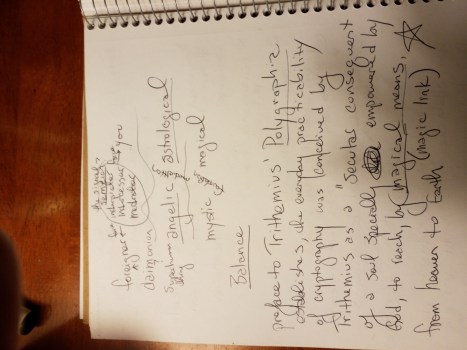 foreigner
interpreter
intercessor
mediator
you
daimonium
angelic astrological
mystic magical
Balance
preface to Trithemius' Polygraphia
establishes, the everyday practicability
of cryptography was conceived by
Trithemius as a "secular consequent
of a soul specially empowered by
God, to reach, by magical means,
from heaven to Earth (magic link)